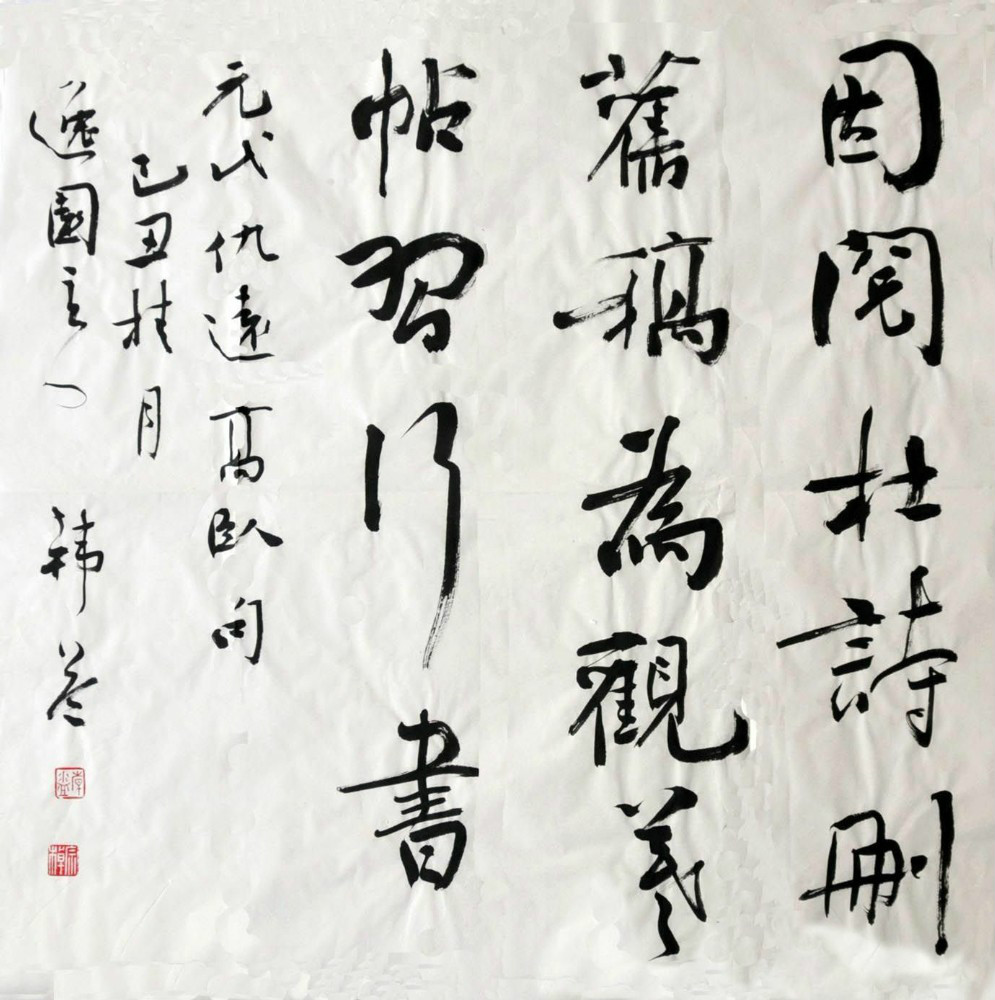 因閱杜詩刪
舊稿為觀羲
帖習行書
元代仇遠高臥句
己丑桂月
逸園主人